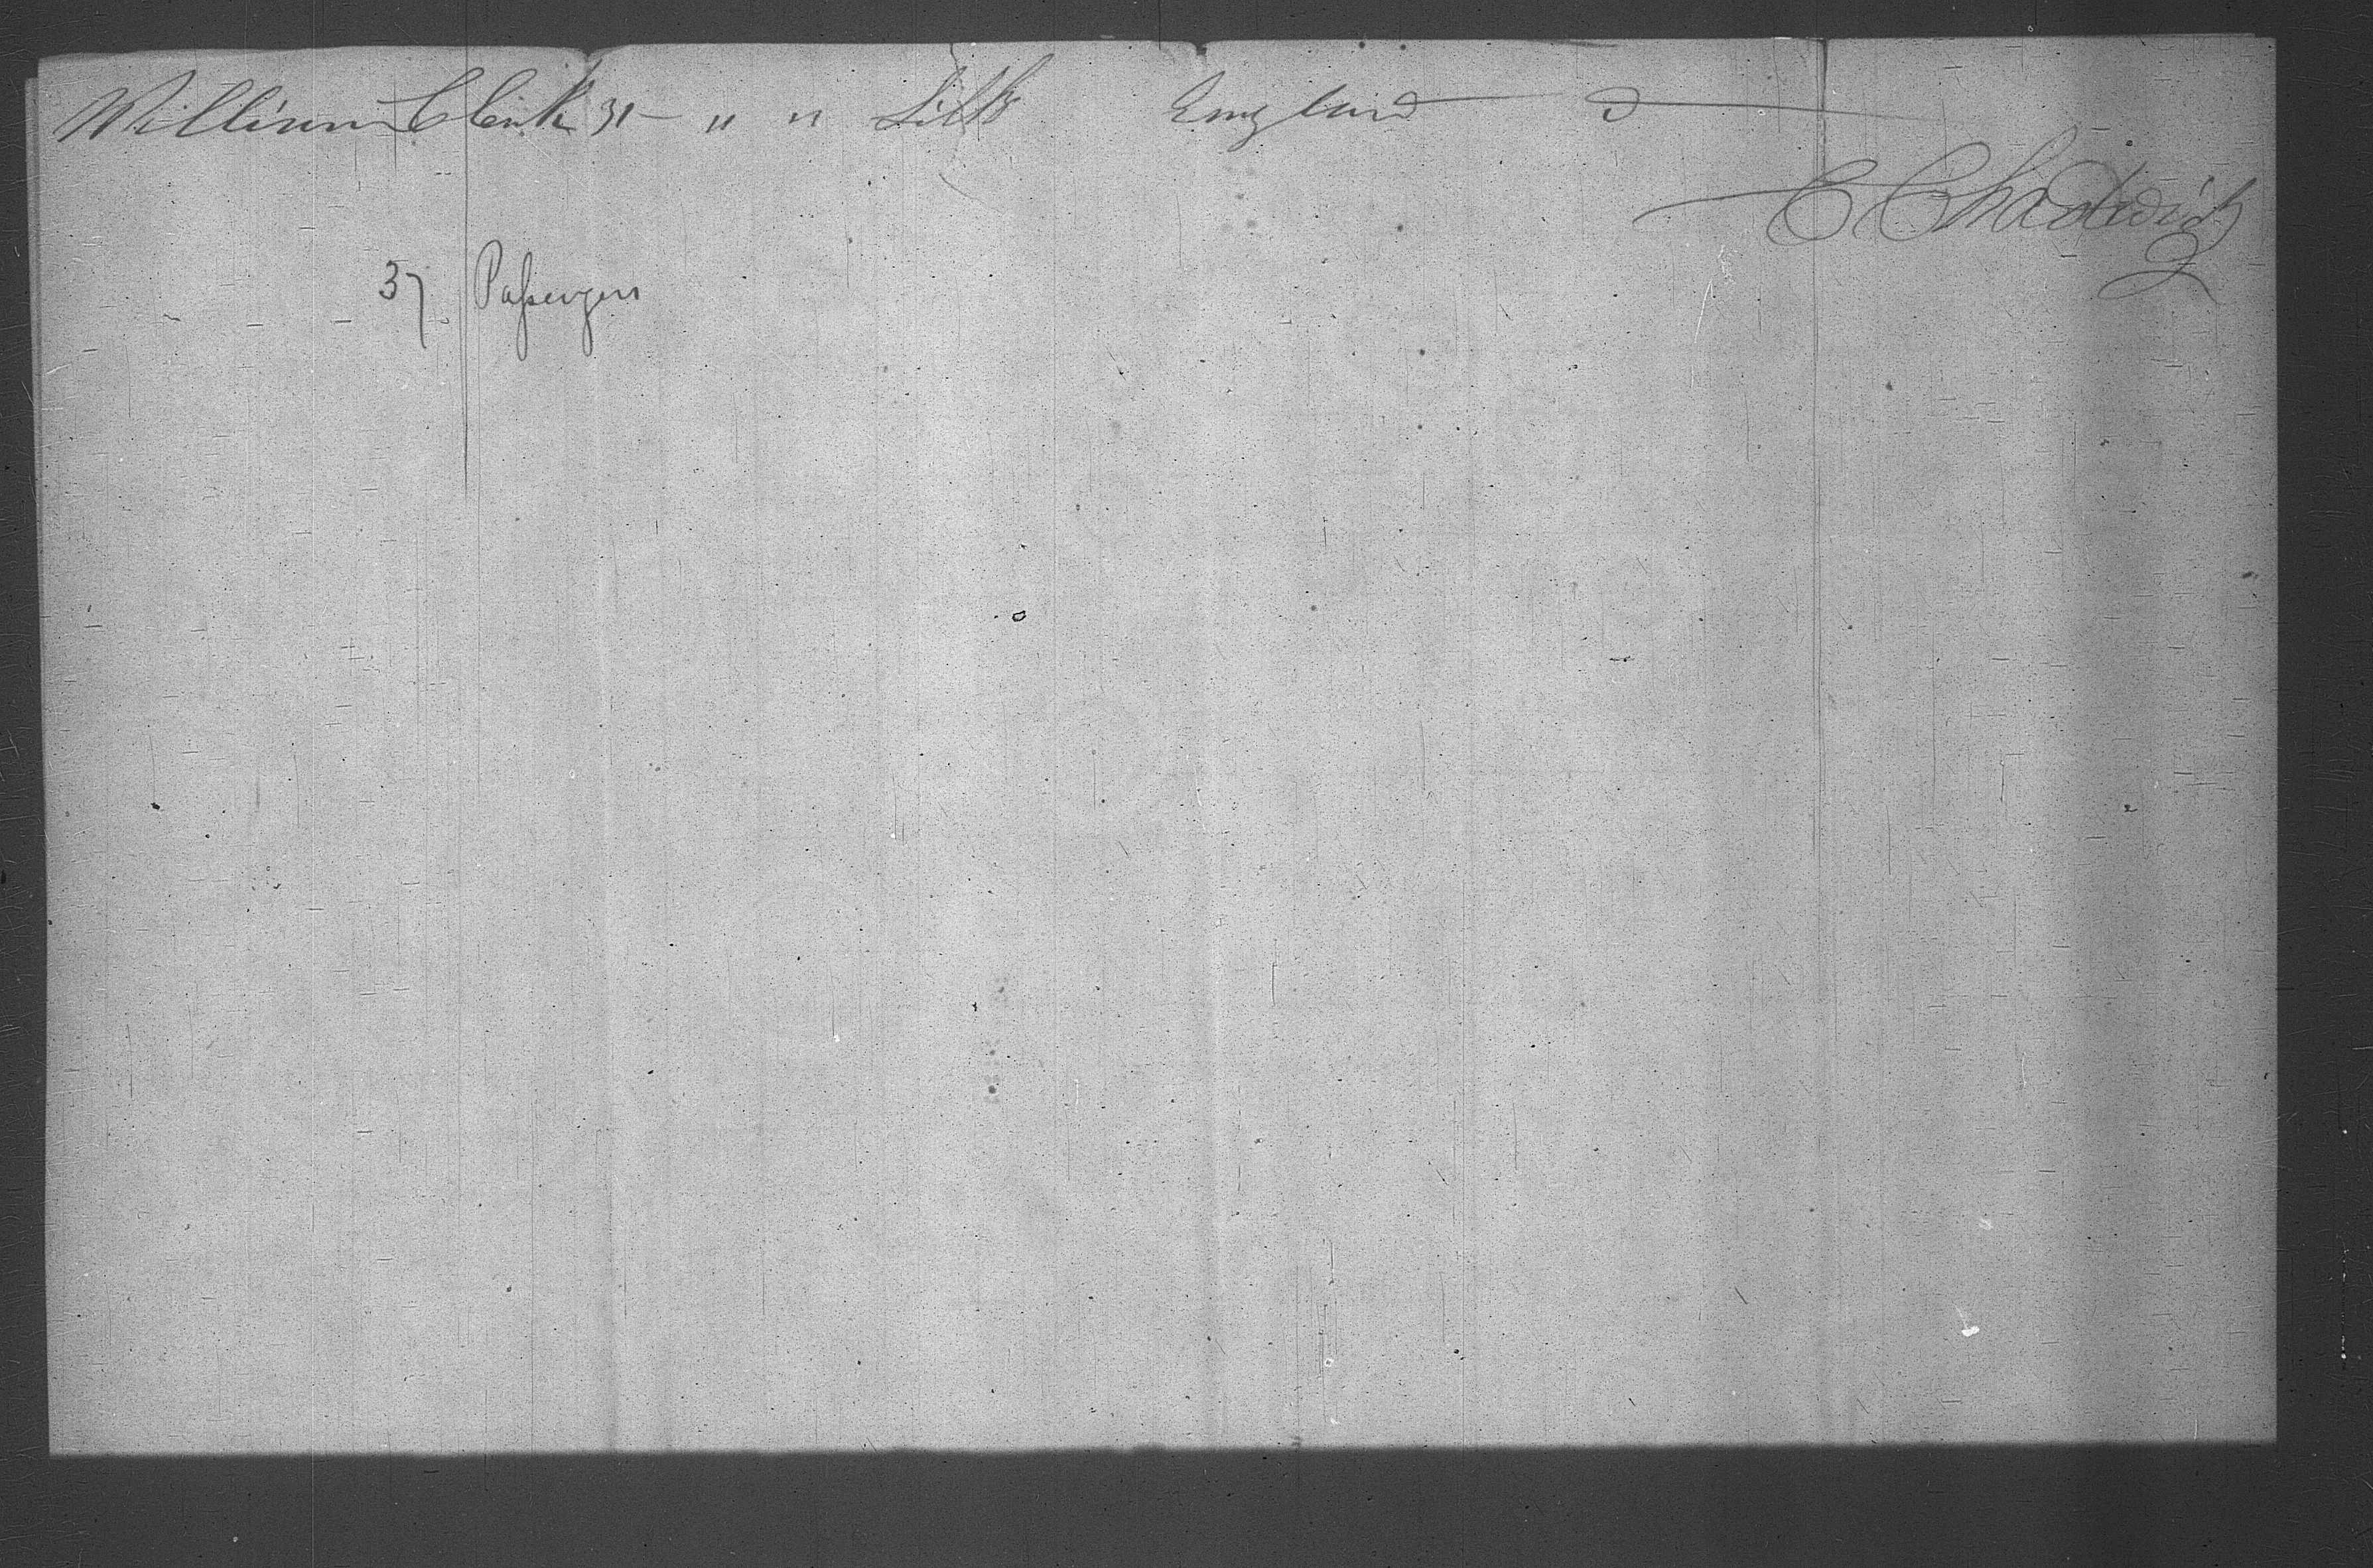 William Clark 31 — " " Silks England — D
E Chadwick
37 Passengers